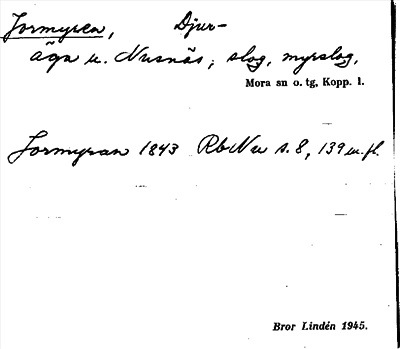 Jormyren, Djur-
äga u. Nusnäs; slog, myrslog.
Mora sn o. tg, Kopp. l.
Jormyran 1843 RbNu s. 8, 139 m. fl.
Bror Lindén 1945.